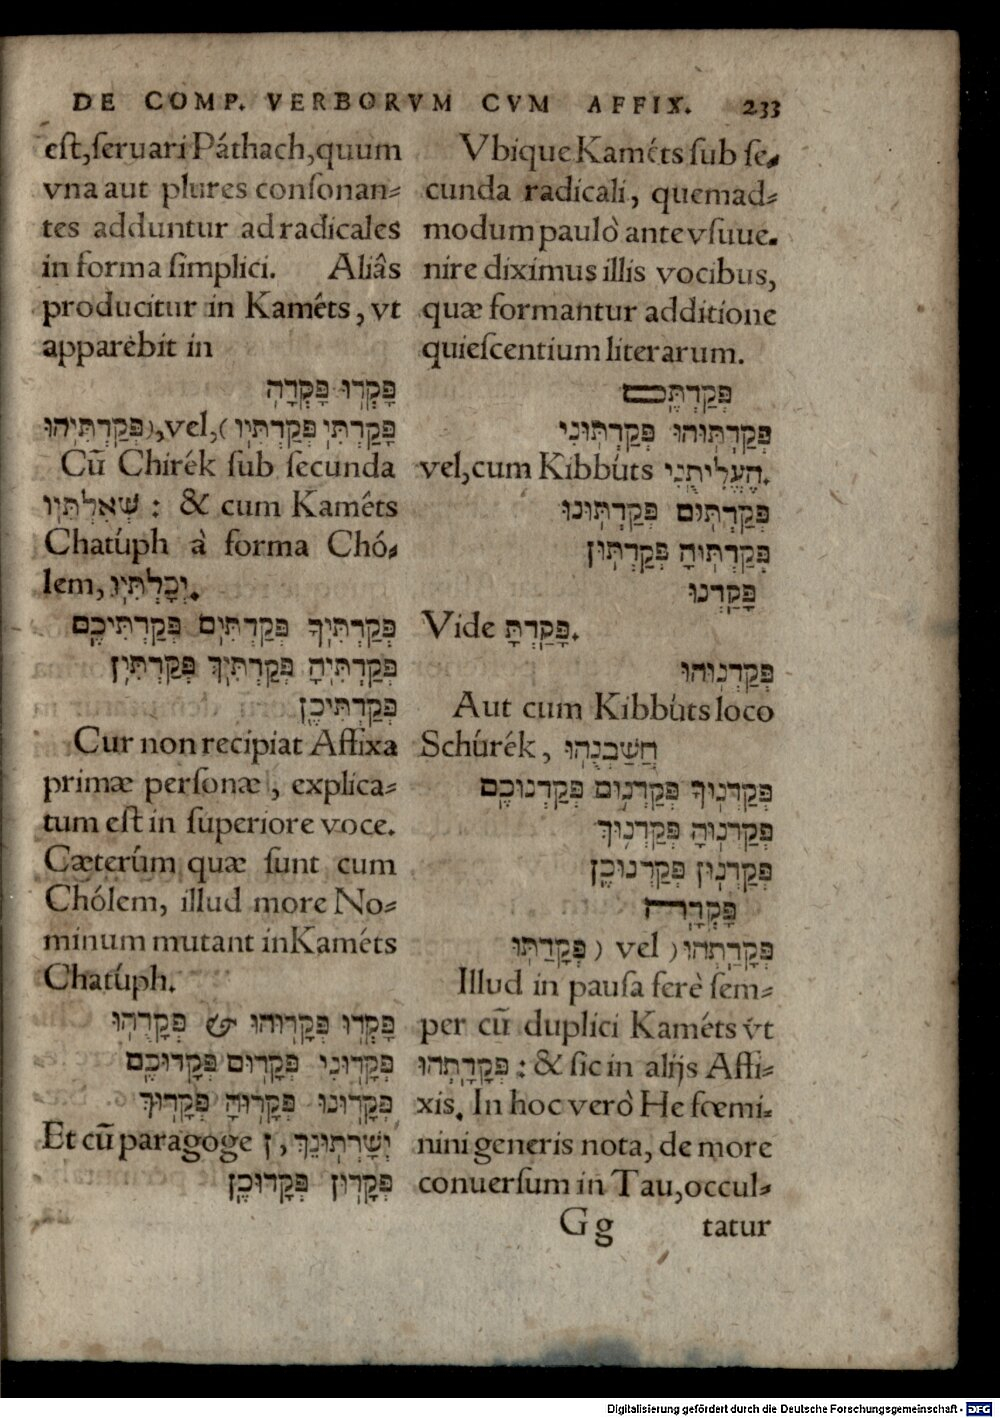 DE COMP. VERBORVM CVM AFFIX. 233
est,seruari Páthach,quum
vna aut plures consonan-
tes adduntur ad radicales
in forma simplici. Aliâs
producitur in Kaméts, vt
apparèbit in
פָּקְדוּ פָּקְדָה
פָּקַדְתִּי פְּקַדְתִּיו ),vel,( פְּקַדְתִּיהוּ
Cũ Chirék sub secunda
שְׁאִלְתִּיו : & cum Kaméts
Chatúph à forma Chó-
lem, יְכָלְתִּיו.
פְּקַדְתִּיךָ פְּקַדְתִּים פְּקַדְתִּיכֶם
פְּקַדְתִּיהָ פְּקַדְתִּיךְ פְּקַדְתִּין
פְּקַדְתִּיכֶן
Cur non recipiat Affixa
primæ personæ, explica-
tum est in superiore voce.
Cæterúm quæ sunt cum
Chólem, illud more No-
minum mutant in Kaméts
Chatúph.
פָּקְדוּ פְּקָדוּהוּ & פְּקָדֻהוּ
פְּקָדוּנִי פְּקָדוּם פְּקָדוּכֶם
פְּקָדוּנוּ פְּקָדוּהָ פְּקָדוּךְ
Et cũ paragoge ן, יְשָׁרְתוּנֶךְ
פְּקָדוּן פְּקָדוּכֶן
Vbique Kaméts sub se-
cunda radicali, quemad-
modum paulò ante vsuue-
nire diximus illis vocibus,
quæ formantur additione
quiescentium literarum.
פְּקַדְתֶּם
פְּקַדְתּוּהוּ פְּקַדְתּוּנִי
vel,cum Kibbúts הֶעֱלִיתֻנִי.
פְּקַדְתּוּם פְּקַדְתּוּנוּ
פְּקַדְתּוּהָ פְּקַדְתּוּן
פָּקַדְנוּ
Vide פָּקַדְתָּ.
פְּקַדְנוּהוּ
Aut cum Kibbúts loco
Schúrék, חֲשַׁבְנֻהוּ
פְּקַדְנוּךָ פְּקַדְנוּם פְּקַדְנוּכֶם
פְּקַדְנוּהָ פְּקַדְנוּךְ
פְּקַדְנוּן פְּקַדְנוּכֶן
פָּקְדָה
פְּקָדַתְהוּ ) vel ( פְּקָדַתּוּ
Illud in pausa ferè sem-
per cũ duplici Kaméts vt
פְּקָדָתְהוּ : & sic in alijs Affi-
xis. In hoc verò He fœmi-
nini generis nota, de more
conuersum in Tau,occul-
Gg tatur
Digitalisierung gefördert durch die Deutsche Forschungsgemeinschaft - DFG